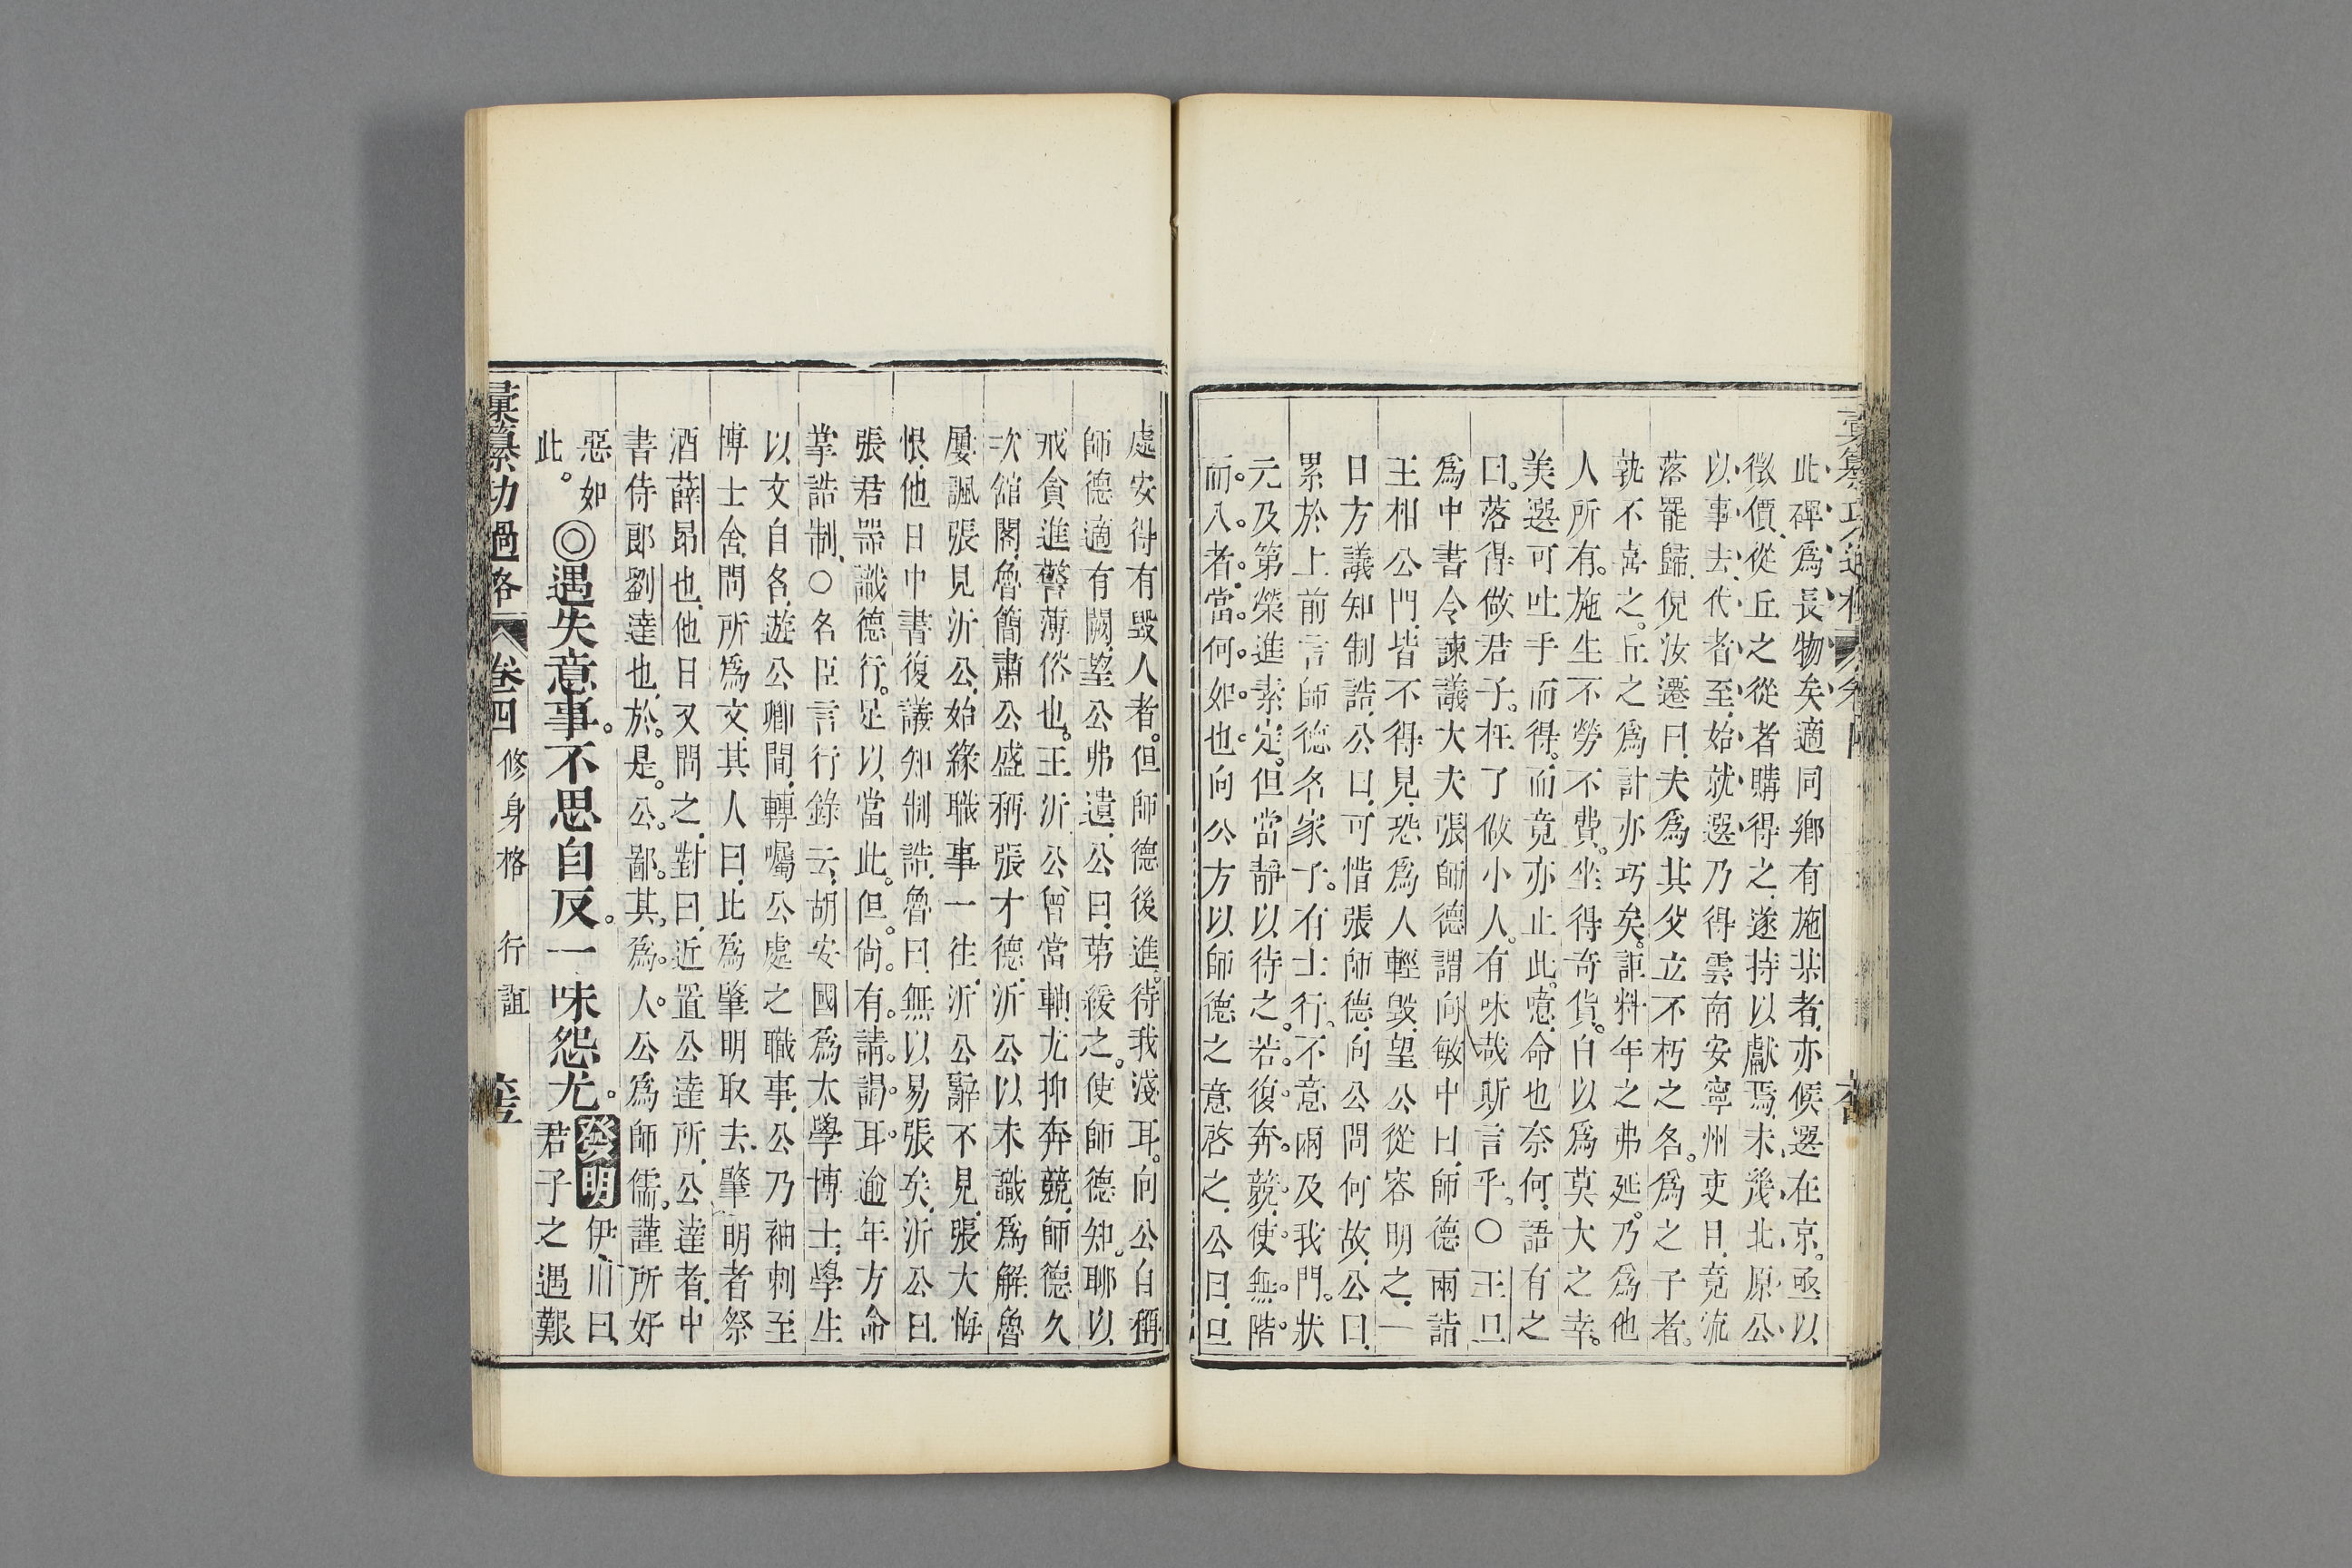 此碑爲長物矣適同鄉有施某者亦候選在京亟以
徵價從丘之從者購得之遂持以獻焉未幾北原公
以事去代者至始就選乃得雲南安寧州吏目竟流
落罷歸倪汝遷曰夫爲其父立不朽之名爲之子者
孰不喜之丘之爲計亦巧矣詎料年之弗延乃爲他
人所有施生不勞不費坐得奇貨自以爲莫大之幸
美選可吐手而得而竟亦止此噫命也奈何語有之
曰落得做君子枉了做小人有味哉斯言乎〇王旦
爲中書令諫議大夫張師德謂向敏中曰師德兩詣
王相公門皆不得見恐爲人輕毀望公從容明之一
日方議知制誥公曰可惜張師德向公問何故公曰
累於上前言師德名家子有士行不意兩及我門狀
元及第榮進素定但當靜以待之若復奔競使無階
而入者當何如也向公方以師德之意啓之公曰旦
處安得有毀人者但師德後進待我淺耳向公自稱
師德適有闕望公弗遺公曰第緩之使師德知聊以
戒貪進警薄俗也王沂公曾當軸尤抑奔競師德久
次舘閣魯簡肅公盛稱張才德沂公以未識爲解魯
屢諷張見沂公始緣職事一往沂公辭不見張大悔
恨他日中書復議知制誥魯曰無以易張矣沂公曰
張君器識德行足以當此但尙有請謁耳逾年方命
掌誥制〇名臣言行錄云胡安國爲太學博士學生
以文自名遊公卿間轉囑公處之職事公乃袖刺至
博士舍問所爲文其人曰此爲肇明取去肇明者祭
酒薛昂也他日又問之對曰近置公達所公達者中
書侍郞劉逵也於是公鄙其爲人公爲師儒謹所好
惡如
此
◎遇失意事不思自反一味怨尤
發明
伊川曰
君子之遇艱
彙纂功過格
卷四
修身格
行誼